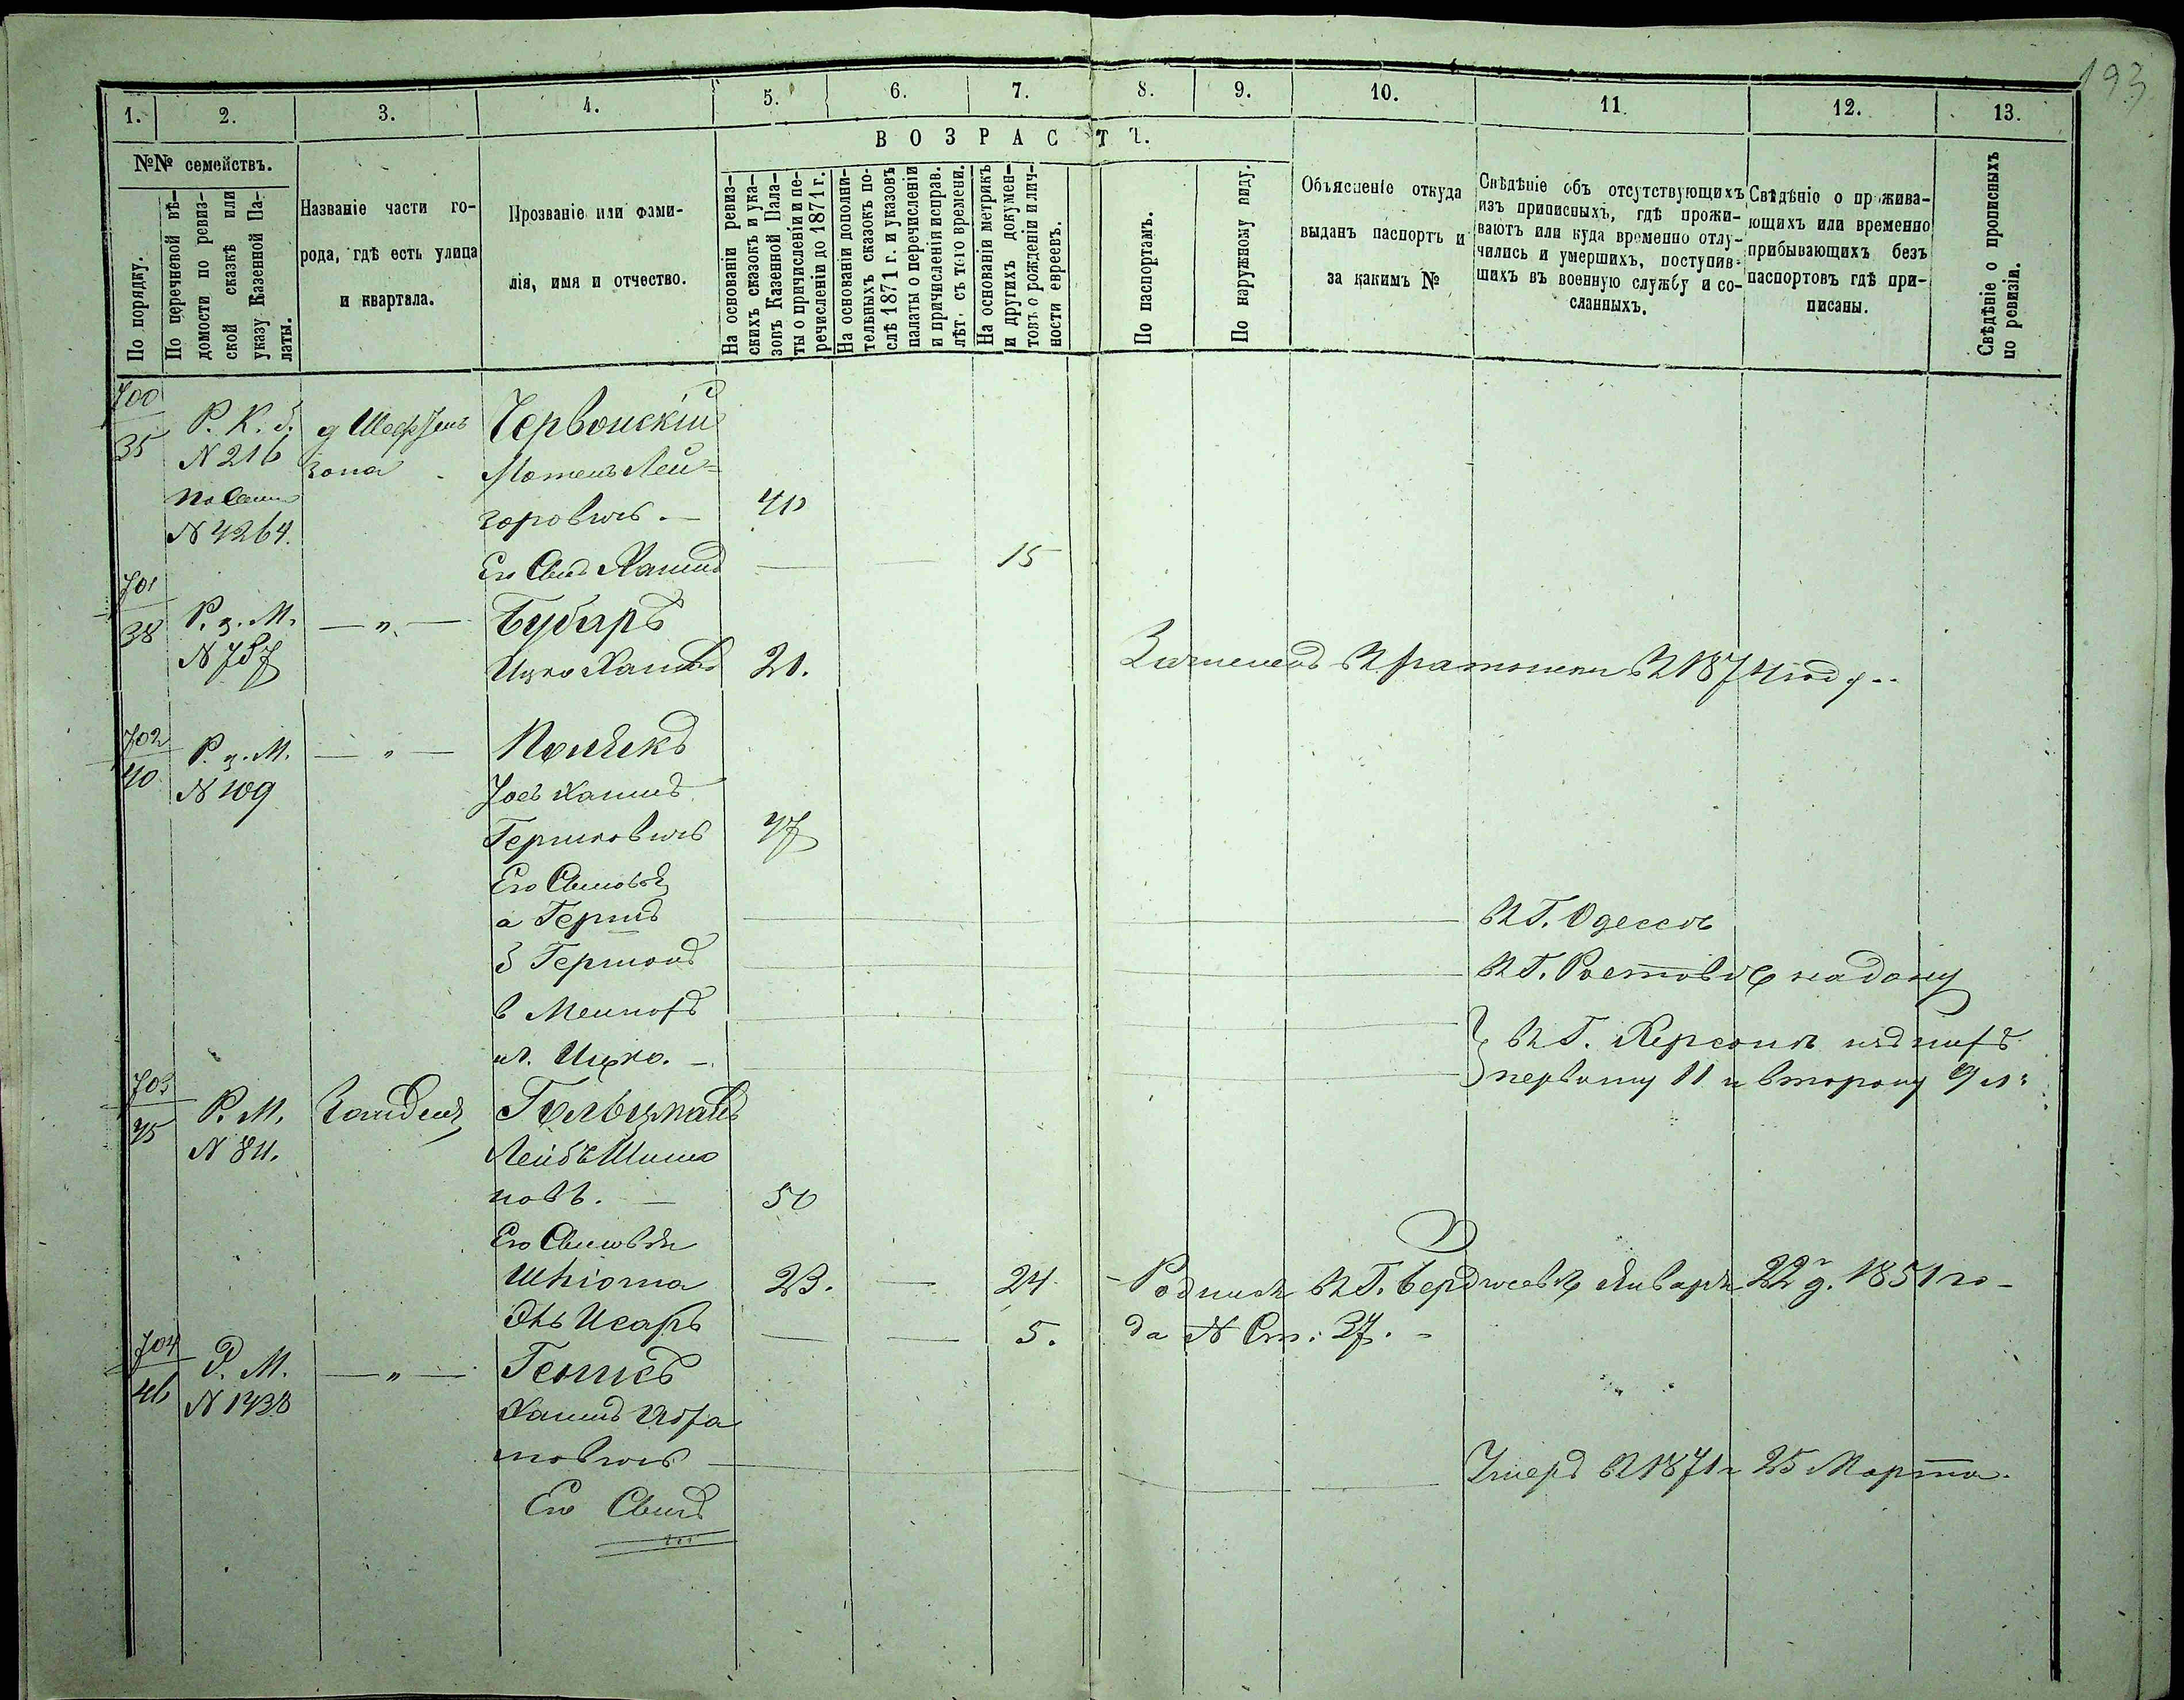 193
1. 2. 3. 4. 5. 6. 7. 8. 9. 10. 11. 12. 13.
ВОЗРАСТЪ.
№№ семействъ.
По порядку.
По перечневой вѣ-
домости по ревиз-
ской сказкѣ или
указу Казенной Па-
латы.
Названіе части го-
рода, гдѣ есть улица
и квартала.
Прозваніе или фами-
лія, имя и отчество.
На основаніи ревиз-
скихъ сказокъ и ука-
зовъ Казенной Пала-
ты о причисленіи и пе-
речисленіи до 1871 г.
На основаніи дополни-
тельныхъ сказокъ по-
слѣ 1871 г. и указовъ
палаты о перечисленіи
и причисленіи исправ.
лѣт. съ того времени.
На основаніи метрикъ
и другихъ докумен-
товъ о рожденіи и лич-
ности евреевъ.
По паспортамъ.
По наружному виду.
Объясненіе откуда
выданъ паспортъ и
за какимъ №
Свѣдѣніе объ отсутствующихъ
изъ приписныхъ, гдѣ прожи-
ваютъ или куда временно отлу-
чились и умершихъ, поступив-
шихъ въ военную службу и со-
сланныхъ.
Свѣдѣніе о прожива-
ющихъ или временно
прибывающихъ безъ
паспортовъ гдѣ при-
писаны.
Свѣдѣніе о прописныхъ
по ревизіи.
700
35
Р. К. Б.
N 216
N 4264.
зона
Червонскій
Мотель Лей=
зоровичъ. — 40
Его Сынъ Хаимъ — — 15
701
38
Р. з. М.
N 787
— " —
Бубаръ
Ицко Хаимов 21.
В 1874 году..
702
40
Р. з. М.
N 109
— " —
Полякъ
Іосъ Хаимъ
Гершковичъ 47
Его Сыновья
а Гершъ — Въ Г. Одессѣ
б Гершонъ — Въ Г. Ростовѣ на дону
в
и г. Ицко. —
Въ Г. Херсонѣ
первому 11 и второму 9 л:
703
45
Р. М.
N 811.
Гольцманъ
Лейбъ Шимо
новъ. — 50
Его Сыновья
Шліома 23. — 24
Исаръ — — 5.
- Родился Въ Г. Бердичевѣ Января 22 д. 1851 го-
да N Ст: 37. -
704
46
Р. М.
N 1438
— " —
Хаимъ Абра
мовичъ — Умеръ В 1871 г 25 Марта.
Его Сынъ